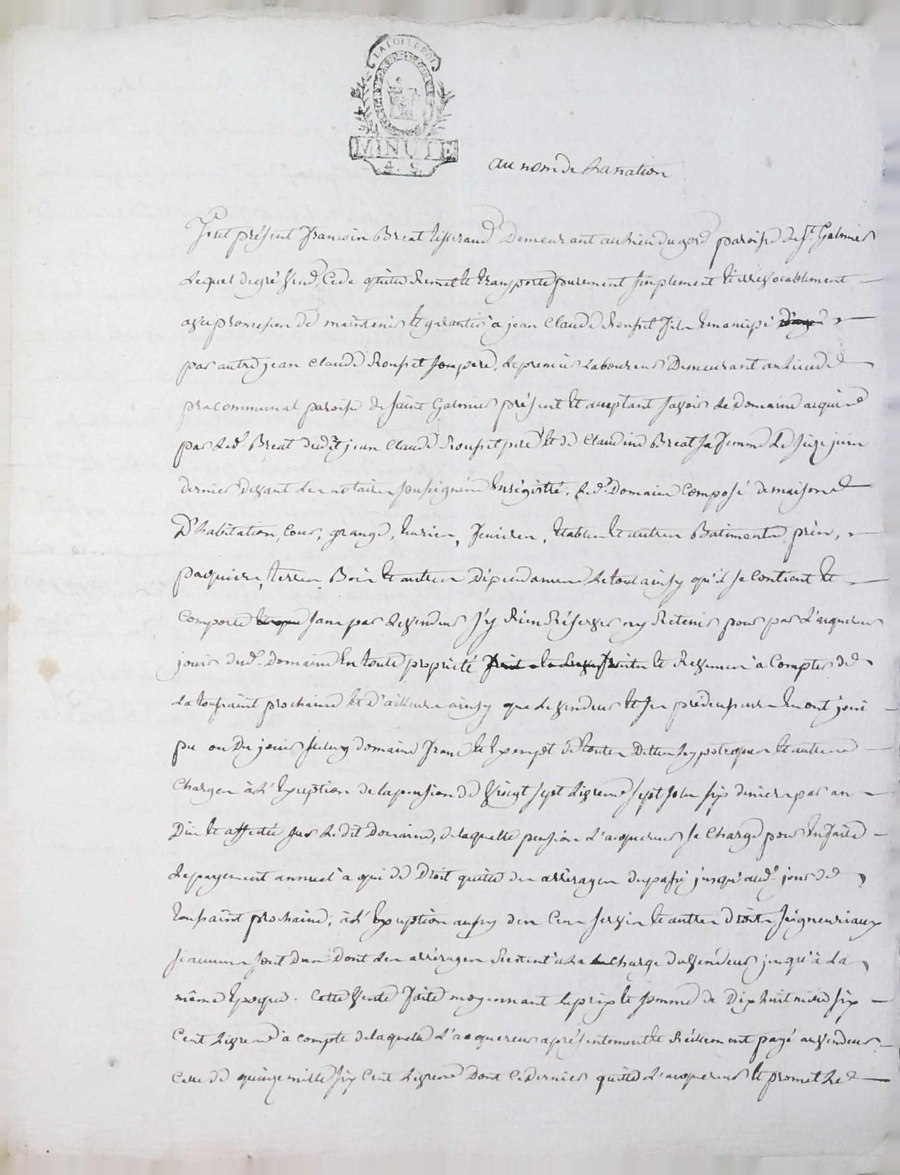 LA LOI LE ROI
MINUTE
4. S.
au nom de la nation
fut présent francois Breat tisserand Demeurant au lieu du gord paroisse de St Galmier
Lequel de gré vend, Cede quitte Remet et transporte purement simplement et irrevocablement
avec promesse de maintenir et garantir a jean Claude Rousset fils Emancipé
par autre jean Claude Rousset son pere, le premier Laboureur Demeurant au lieu de
pra communal paroisse de saint Galmier présent et acceptant savoir le Domaine acquis
par led. Breat dudit jean Claude Rousset pere et de Claudine Breat sa femme le seize juin
dernier devant les notaires soussignés Enrégistré, led. Domaine Composé de maison
D'habitation, Cour, grange, Ecurie, feniere, Etables et autres Batiments, prés,
paquiers, terres Bois et autres Dépendances le tout ainsy qu'il se Contient et
Comporte sans par le vendeur s'y Rien Réserver ny Retenir pour par l'acquereur
jouir dud. Domaine En toute propriété et Revenus a Compter de
la toussaint prochaine Et D'ailleurs ainsy que le vendeur et ses prédecesseurs En ont joui
pu ou Du jouir Iceluy domaine franc et Exempt de toutes Dettes hypoteques et autres
Charges à L'Exception de la pension de vingt sept Livres sept sols six deniers par an
Due et affectée sur Ledit Domaine, de laquelle pension L'acquereur se Charge pour En faire
le payement annuel a qui de Droit quitte des arrérages du passé jusqu'aud. jour de
toussaint prochaine; à L'Exception aussy des Cens servis et autres droits seigneuriaux
si aucuns sont Dus Dont les arrérages Restent a la Charge du vendeur jusqu'à La
même Epoque. Cette vente faite moyennant le prix et somme de Dix huit mille six
Cent Livres a compte de laquelle L'acquereur a présentement et Réellement payé au vendeur
Celle de quinze mille six Cent Livres Dont Ce dernier quitte L'acquereur et promet Le